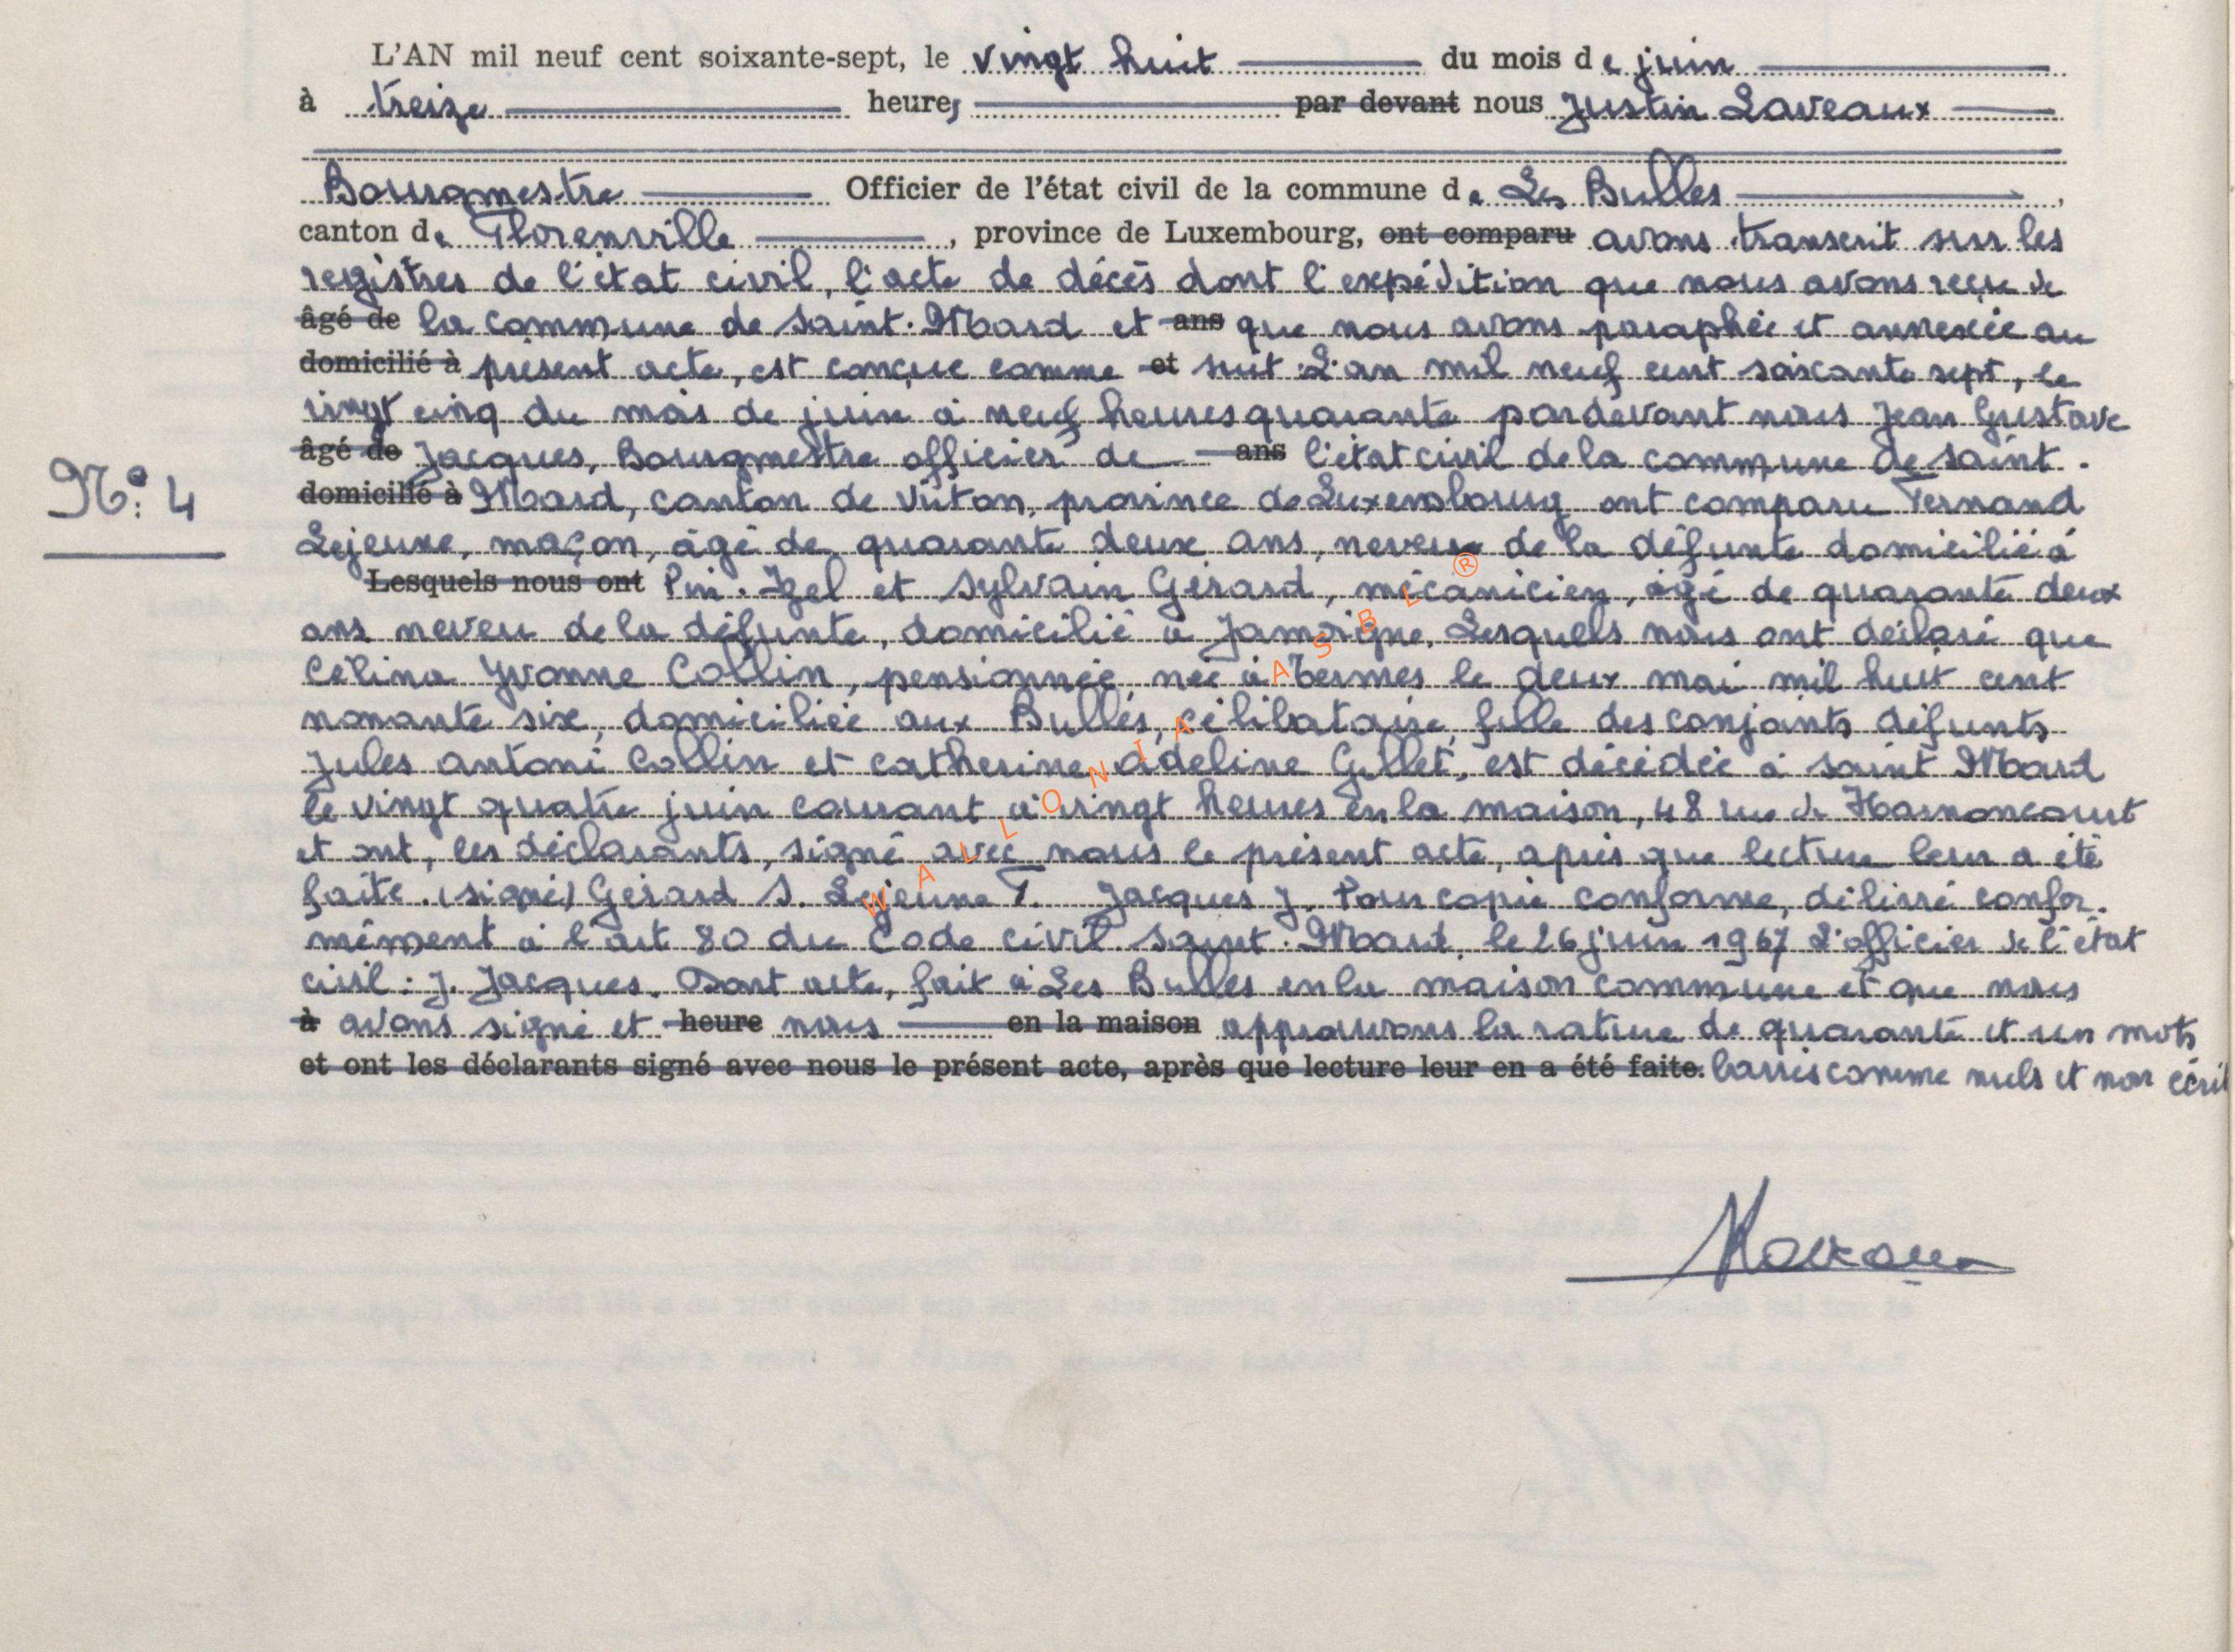 L'AN mil neuf cent soixante-sept, le vingt huit du mois de juin
à treize heures par devant nous Justin Laveaux
Bourgmestre Officier de l'état civil de la commune de Les Bulles,
canton de Florenville, province de Luxembourg, ont comparu avons transcrit sur les
registres de l'état civil, l'acte de décès dont l'expédition que nous avons reçue de
âgé de la commune de Saint-Mard et ans que nous avons paraphée et annexée au
domicilié à présent acte, est conçue comme et suit L'an mil neuf cent soixante sept, le
vingt cinq du mois de juin à neuf heures quarante pardevant nous Jean Gustave
âgé de Jacques, Bourgmestre officier de ans l'état civil de la commune de Saint-
N° 4
domicilié à Mard, canton de Virton, province de Luxembourg ont comparu Fernand
Lejeune, maçon, âgé de quarante deux ans, neveu de la défunte domicilié à
Lesquels nous ont Pin-Izel et Sylvain Gérard, mécanicien, âgé de quarante deux
ans neveu de la défunte, domicilié à Jamoigne. Lesquels nous ont déclaré que
Célina Yvonne Collin, pensionnée, née à Termes le deux mai mil huit cent
nonante six, domiciliée aux Bulles, célibataire, fille des conjoints défunts
Jules Antoni Collin et Catherine Adeline Gillet, est décédée à Saint Mard
le vingt quatre juin courant à vingt heures en la maison, 48 rue de Harnoncourt
et ont, les déclarants, signé avec nous le présent acte, après que lecture leur a été
faite. (signé) Gérard S. Lejeune F. Jacques J. Pour copie conforme, délivré confor-
mément à l'art 80 du Code civil Saint-Mard, le 26 juin 1967 L'officier de l'état
civil: J. Jacques. Dont acte, fait à Les Bulles en la maison commune et que nous
à avons signé et heure nous en la maison approuvons la rature de quarante et un mots
et ont les déclarants signé avec nous le présent acte, après que lecture leur en a été faite. barrés comme nuls et non écrit
WALLONIA ASBL ®